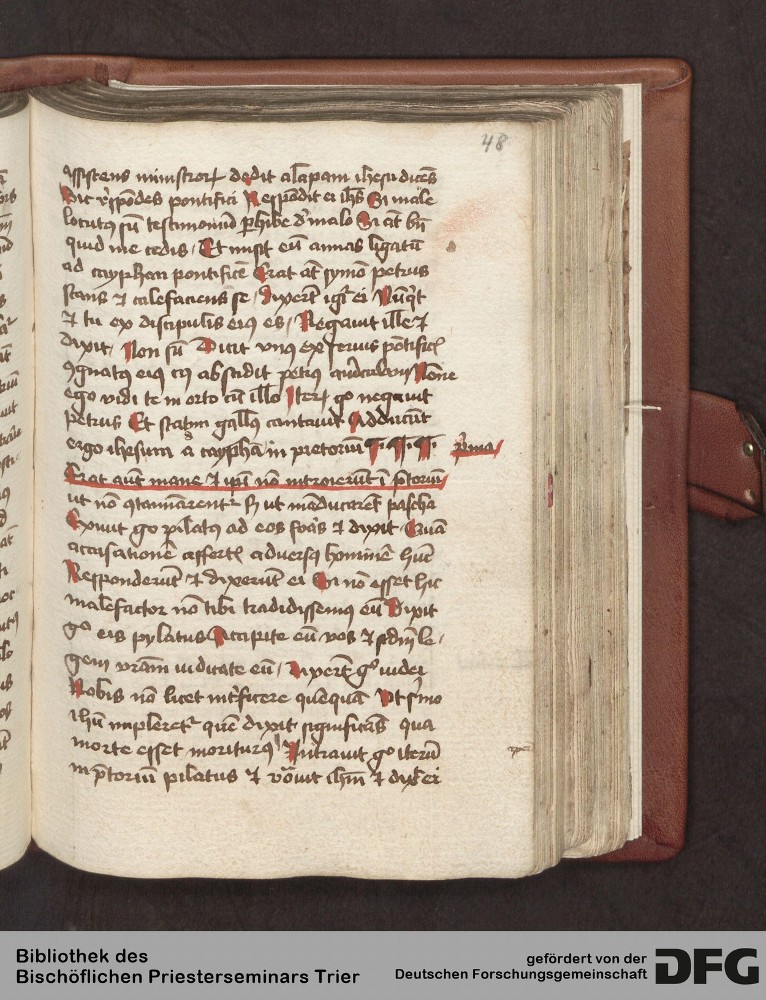 48
assistens ministror̄ dedit alapam ihesu dicēs
Sic r̄spōdes pontifici Respondit ei ihs̄ Si male
locutus sū testimoniū ꝑhibe d' malo Si āt bn̄
quid me cedis Et misit eū annas ligatū
ad caypham pontificē Erat āt symon petrus
stans ⁊ calefaciens se Dixerūt igr̄ ei Nūqͥt
⁊ tu ex discipulis eiꝰ es Negauit ille ⁊
dixit Non sū Dicit vnꝰ ex seruis pōtificꝭ
ꝯgnatꝰ eiꝰ cꝰ abscidit petrꝰ auriculam Nōne
ego vidi te in orto cū illo Iter̄ gͦ negauit
petrus Et statim gallꝰ cantauit Adducūt
ergo ihesum a caypha in pretoriū
pͥma
Erat aūt mane ⁊ ipsi nō introierūt ī p̄toriū
ut nō ꝯtaminarentᷣ sꝫ ut māducarēt pascha
Exiuit gͦ pilatꝰ ad eos foras ⁊ dixit Quā
accusationē affertꝭ aduersꝰ hominē hūc
Responderūt ⁊ dixerūt ei Si nō esset hic
malefactor nō tibi tradidissemꝰ eū Dixit
gͦ eis pylatus Accipite eū vos ⁊ scd̄m le-
gem vr̄am iudicate eū Dixerūt gͦ iudei
Nobis nō licet int̄ficere quēquā Vt sͬmo
ihū impleretᷣ quē dixit significās qua
morte esset moriturꝰ Intrauit gͦ iterū
in p̄toriū pilatus ⁊ vocauit ihm̄ ⁊ dix̄ ei
Bibliothek des
Bischöflichen Priesterseminars Trier
gefördert von der
Deutschen Forschungsgemeinschaft
DFG